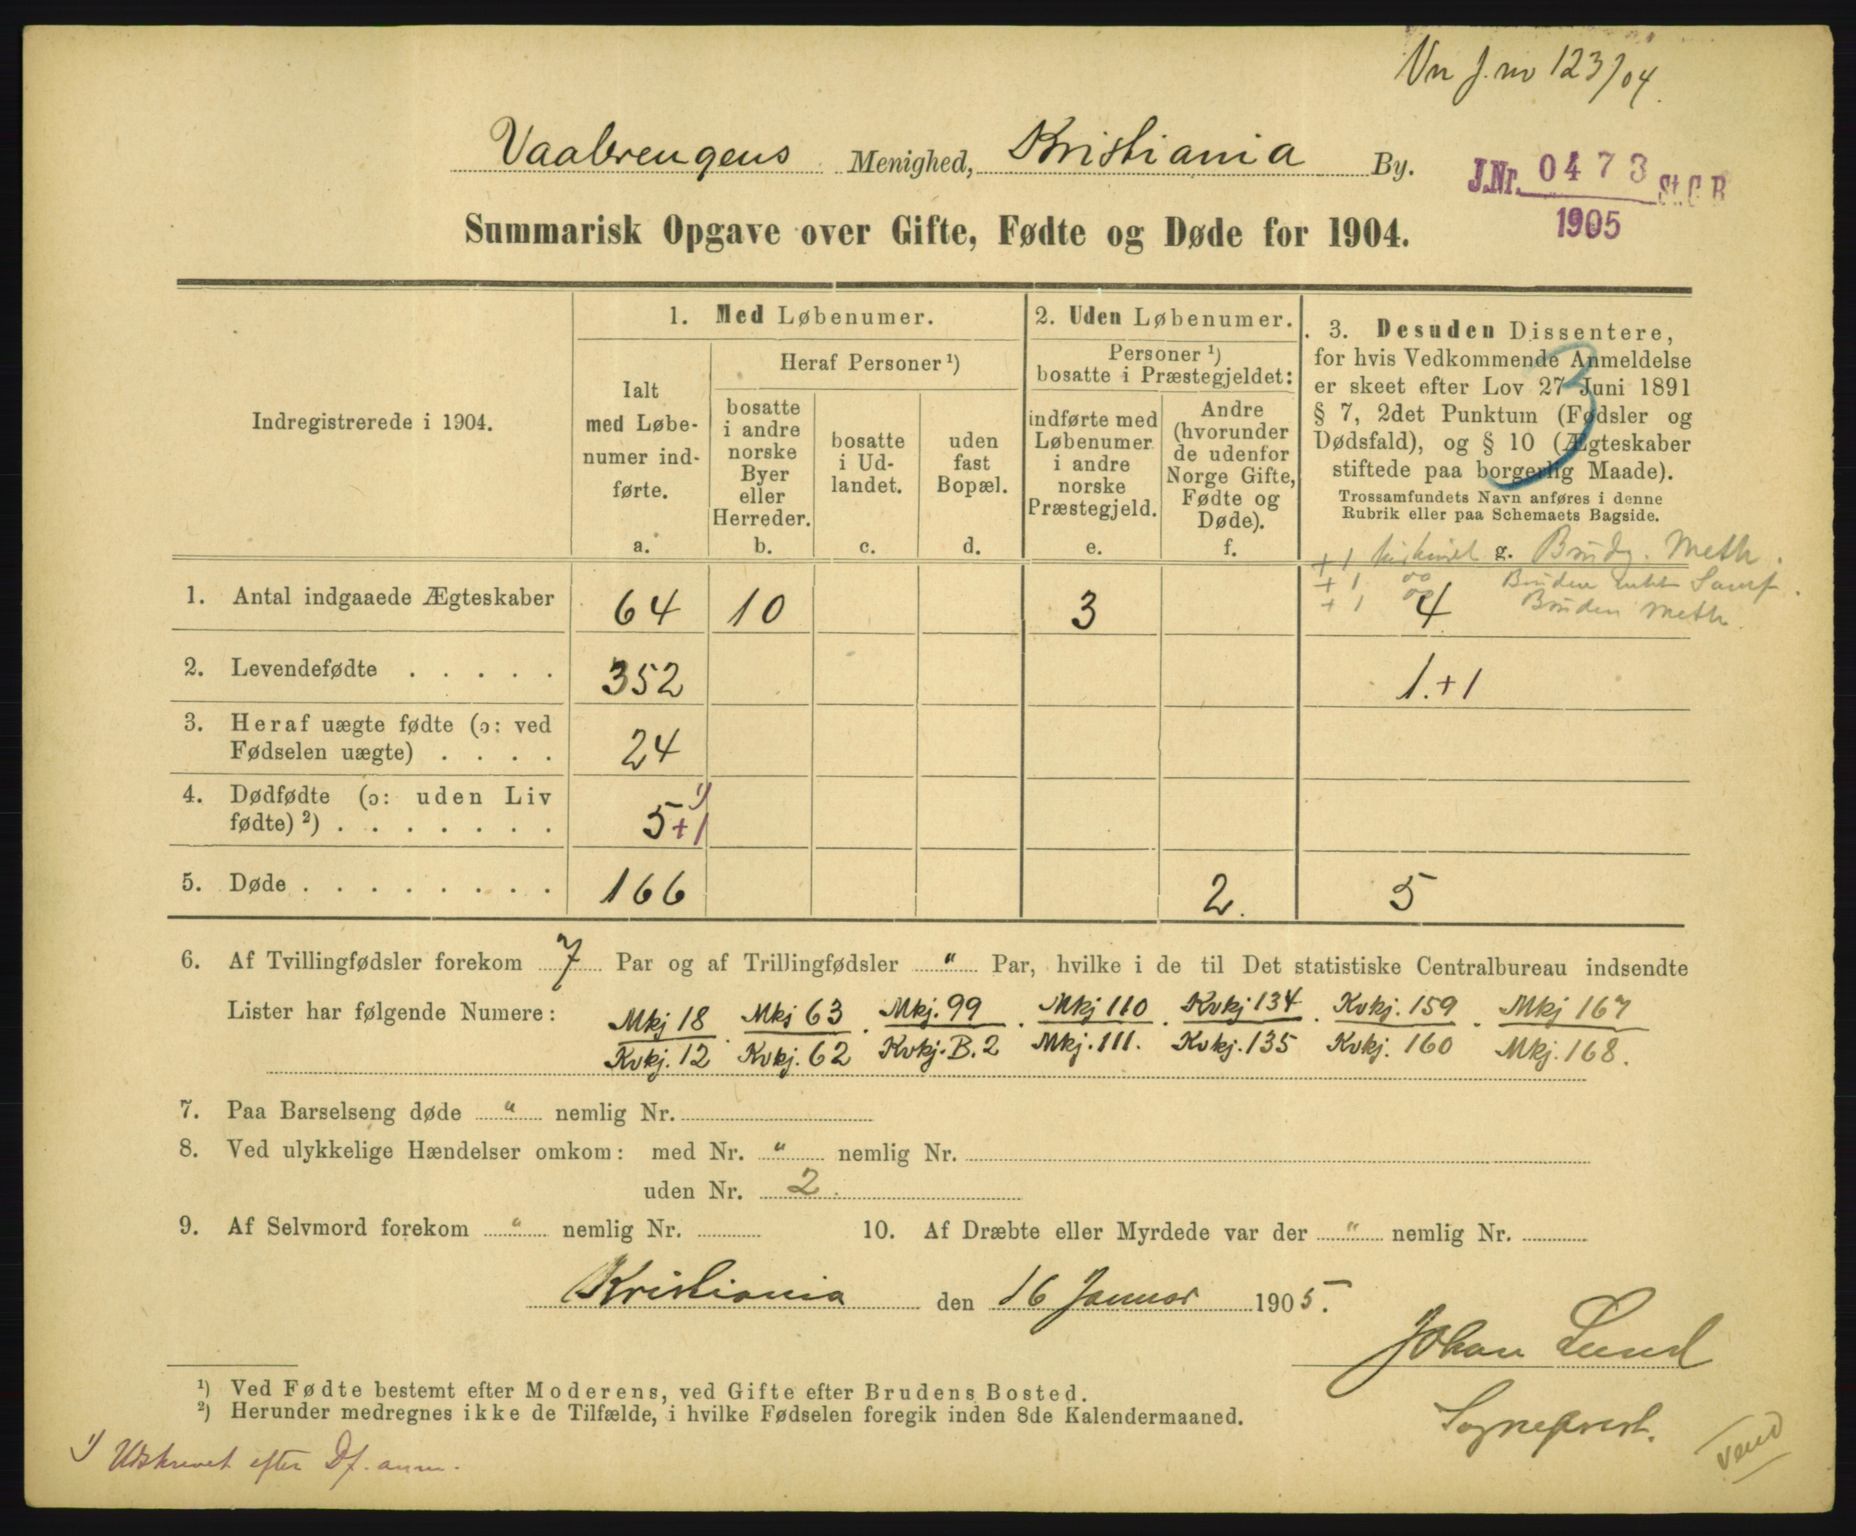 Vn J.nr 123/04.
Vaalerengens Menighed, Kristiania By.
J.Nr. 0473 St.C.B.
1905
Summarisk Opgave over Gifte, Fødte og Døde for 1904.
Indregistrerede i 1904.
1. Med Løbenumer.
Ialt med Løbe-
numer ind-
førte.
a.
Heraf Personer ¹)
bosatte
i andre
norske
Byer
eller
Herreder.
b.
bosatte
i Ud-
landet.
c.
uden
fast
Bopæl.
d.
2. Uden Løbenumer.
Personer ¹)
bosatte i Præstegjeldet:
indførte med
Løbenumer
i andre
norske
Præstegjeld.
e.
Andre
(hvorunder
de udenfor
Norge Gifte,
Fødte og
Døde).
f.
3. Desuden Dissentere,
for hvis Vedkommende Anmeldelse
er skeet efter Lov 27 Juni 1891
§ 7, 2det Punktum (Fødsler og
Dødsfald), og § 10 (Ægteskaber
stiftede paa borgerlig Maade).
Trossamfundets Navn anføres i denne
Rubrik eller paa Schemaets Bagside.
3
g.
+ 1 Brudg. Meth.
+ 1 Bruden Samf.
+ 1 Bruden Meth.
1. Antal indgaaede Ægteskaber 64 10 3 4
2. Levendefødte . . . . . 352 1.+1
3. Heraf uægte fødte (ɔ: ved
Fødselen uægte) . . . . 24
4. Dødfødte (ɔ: uden Liv
fødte) ²) . . . . . . . 5+1 ¹)
5. Døde . . . . . . . . 166 2. 5
6. Af Tvillingfødsler forekom 7 Par og af Trillingfødsler " Par, hvilke i de til Det statistiske Centralbureau indsendte
Lister har følgende Numere: Mkj 18 . Mkj 63 . Mkj. 99 . Mkj 110 . Kvkj 134 . Kvkj. 159 . Mkj 167
Kvkj. 12 Kvkj. 62 Kvkj. B. 2 Mkj. 111. Kvkj. 135 Kvkj. 160 Mkj. 168.
7. Paa Barselseng døde " nemlig Nr.
8. Ved ulykkelige Hændelser omkom: med Nr. " nemlig Nr.
uden Nr. 2.
9. Af Selvmord forekom " nemlig Nr. 10. Af Dræbte eller Myrdede var der " nemlig Nr.
Kristiania den 16 Januar 1905.
Johan Lund
Sogneprest.
¹) Ved Fødte bestemt efter Moderens, ved Gifte efter Brudens Bosted.
²) Herunder medregnes ikke de Tilfælde, i hvilke Fødselen foregik inden 8de Kalendermaaned.
¹) Udskrevet efter Df. anm.
Vend